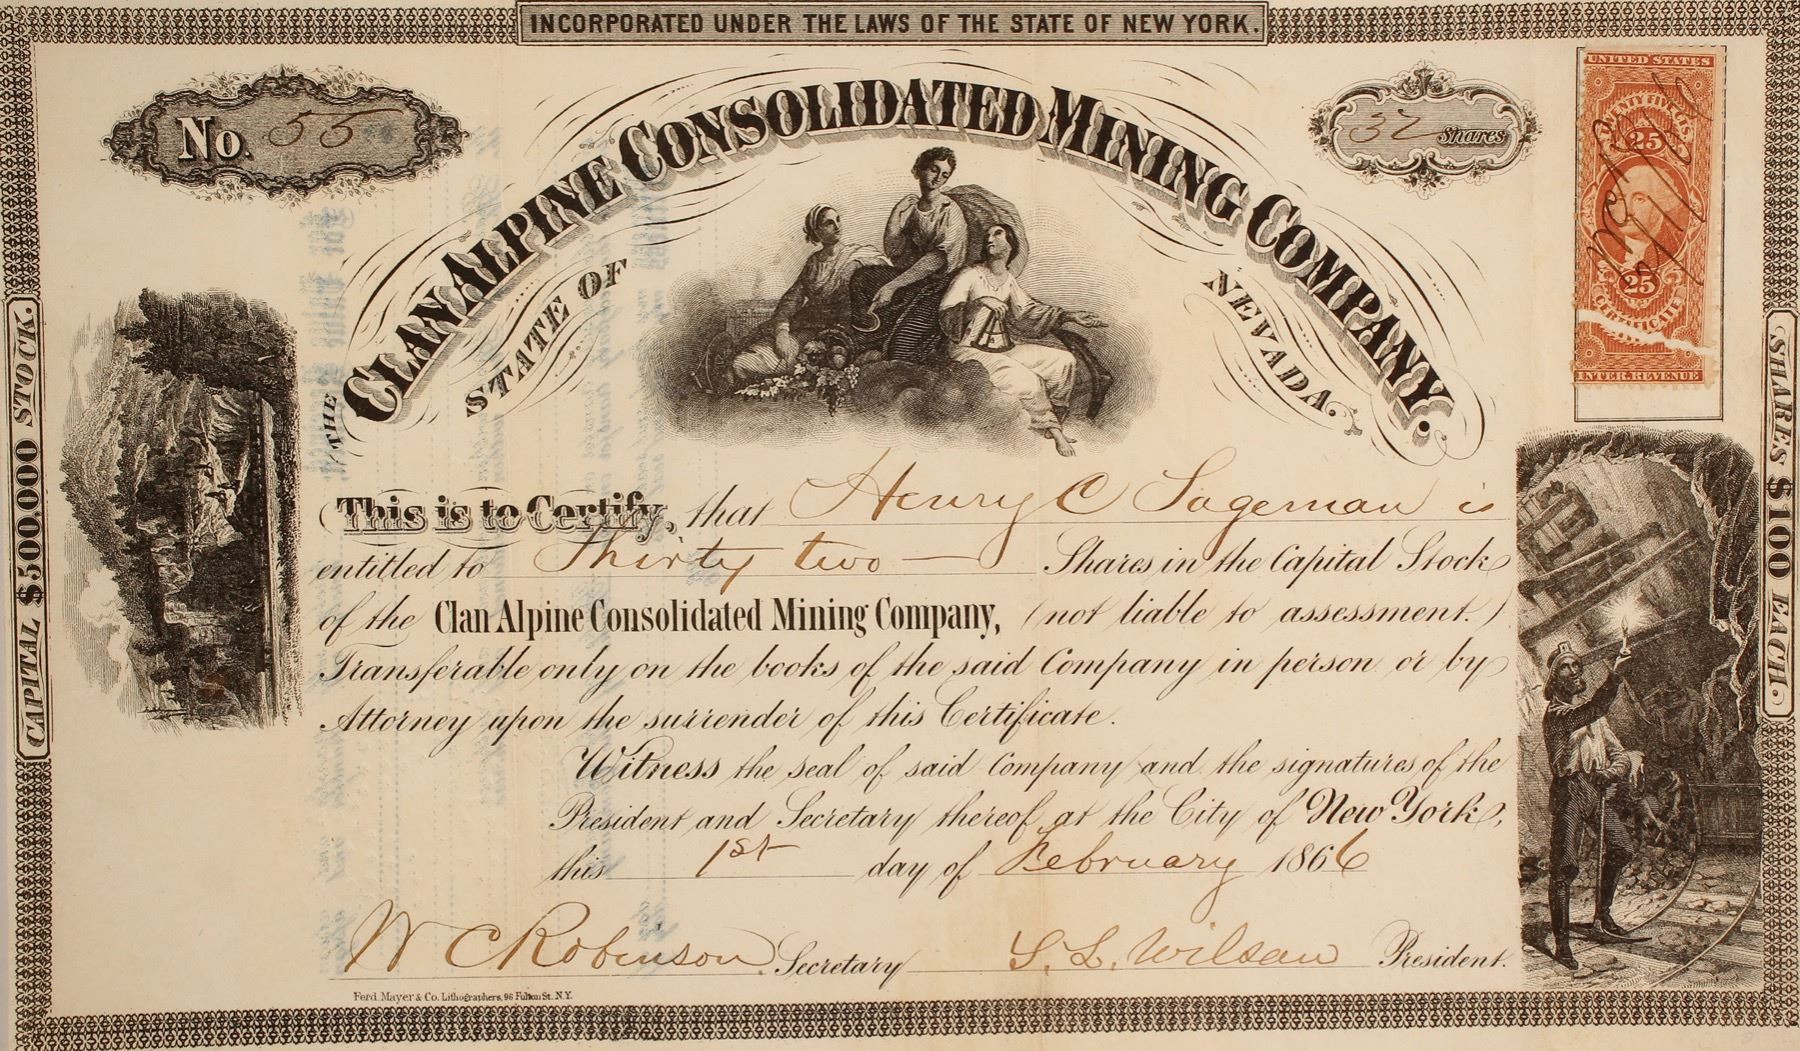 INCORPORATED UNDER THE LAWS OF THE STATE OF NEW YORK.
No. 55
32 Shares
UNITED STATES
TWENTY FIVE CTS.
25
25
CERTIFICATE
INTER. REVENUE
THE CLAN ALPINE CONSOLIDATED MINING COMPANY.
STATE OF NEVADA.
CAPITAL $500.000 STOCK.
SHARES $100 EACH.
This is to Certify, that Henry C Sageman is
entitled to Thirty two Shares in the Capital Stock
of the Clan Alpine Consolidated Mining Company, (not liable to assessment.)
Transferable only on the books of the said Company in person or by
Attorney upon the surrender of this Certificate.
Witness the seal of said Company and the signatures of the
President and Secretary thereof at the City of New York,
this 1st day of February 1866
W C Robinson Secretary S. L. Wilson President.
Ferd. Mayer & Co. Lithographers, 96 Fulton St. N.Y.